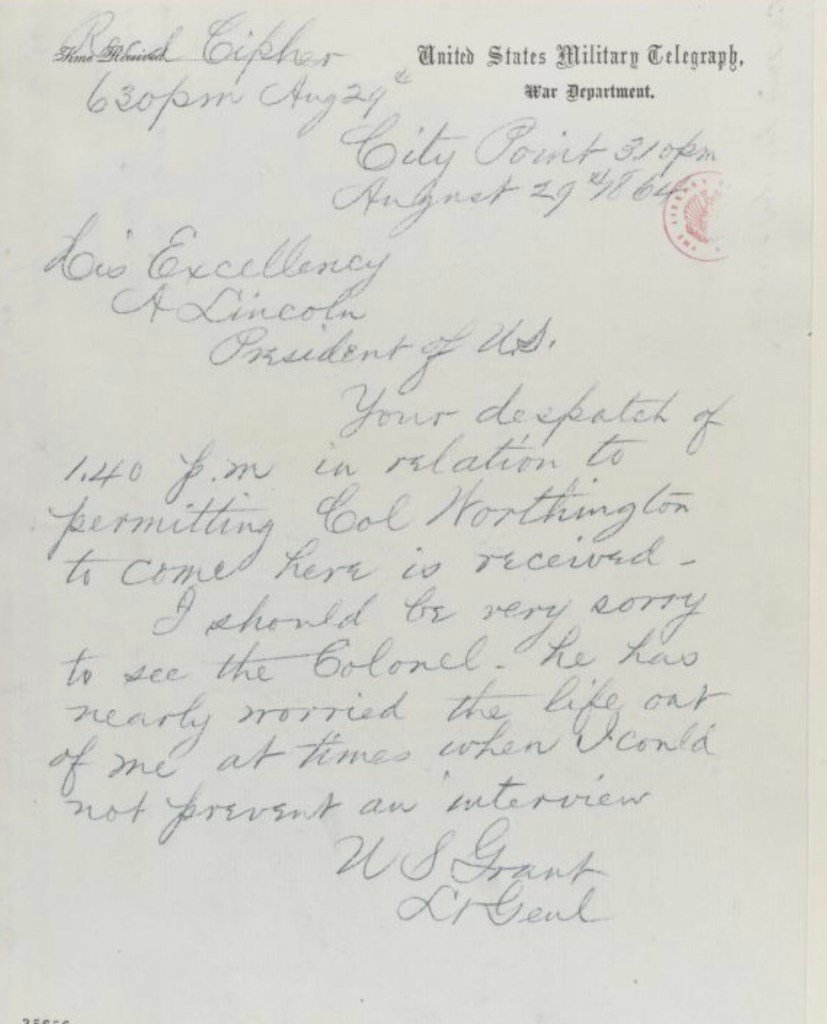 Recd Cipher
Time Received
630pm Aug 29th
United States Military Telegraph,
War Department.
City Point 310pm
August 29th 1864
His Excellency
A Lincoln
President of U.S.
Your despatch of
1.40 p.m in relation to
permitting Col Worthington
to come here is received -
I should be very sorry
to see the Colonel - he has
nearly worried the life out
of me at times when I could
not prevent an interview
U S Grant
Lt Genl